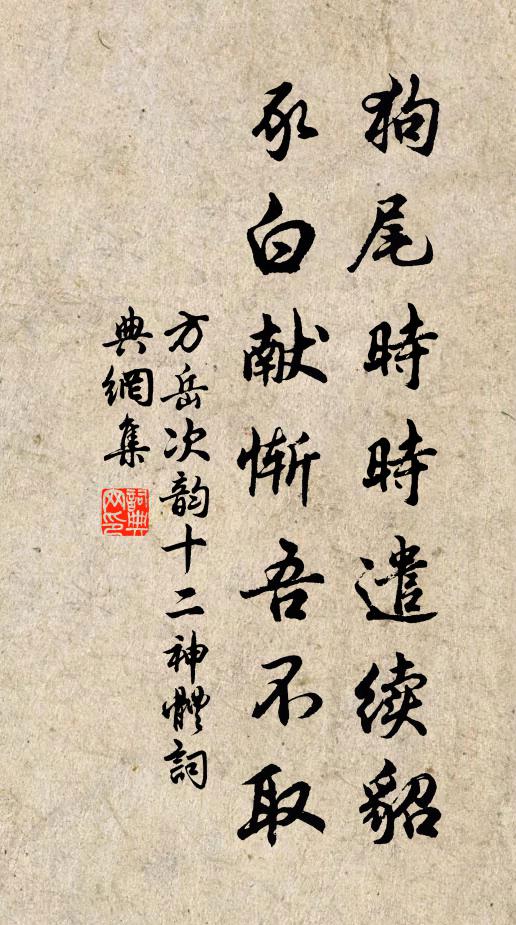 狗尾時時遣续貂
豕白献惭吾不取
方岳次韵十二神體詞
典網集
詞典
网印